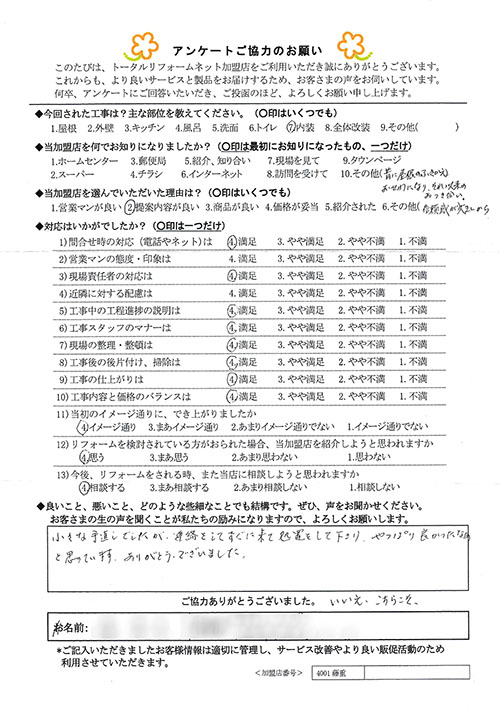 アンケートご協力のお願い
このたびは、トータルリフォームネット加盟店をご利用いただき誠にありがとうございます。
これからも、より良いサービスと製品をお届けするため、お客さまの声をお伺いしています。
何卒、アンケートにご回答いただいき、ご投函のほど、よろしくお願い申し上げます。
◆今回された工事は？主な部位を教えてください。（〇印はいくつでも）
1.屋根 2.外壁 3.キッチン 4.風呂 5.洗面 6.トイレ ⑦内装 8.全体改装 9.その他( )
◆当加盟店を何でお知りになりましたか？（〇印は最初にお知りになったもの、一つだけ）
1.ホームセンター 3.郵便局 5.紹介、知り合い 7.現場を見て 9.タウンページ
2.スーパー 4.チラシ 6.インターネット 8.訪問を受けて 10.その他(前に屋根のふきかえ
おせわになり、それい以来の
おつき合い。
◆当加盟店を選んでいただいた理由は？（〇印はいくつでも）
1.営業マンが良い ②提案内容が良い 3.商品が良い 4.価格が妥当 5.紹介された 6.その他(
◆対応はいかがでしたか？（〇印は一つだけ）
1)問合せ時の対応（電話やネット）は ④満足 3.やや満足 2.やや不満 1.不満
2)営業マンの態度・印象は 4.満足 3.やや満足 2.やや不満 1.不満
3)現場責任者の対応は ④満足 3.やや満足 2.やや不満 1.不満
4)近隣に対する配慮は 4.満足 3.やや満足 2.やや不満 1.不満
5)工事中の工程進捗の説明は ④満足 3.やや満足 2.やや不満 1.不満
6)工事スタッフのマナーは ④満足 3.やや満足 2.やや不満 1.不満
7)現場の整理・整頓は ④満足 3.やや満足 2.やや不満 1.不満
8)工事後の後片付け、掃除は ④満足 3.やや満足 2.やや不満 1.不満
9)工事の仕上がりは ④満足 3.やや満足 2.やや不満 1.不満
10)工事内容と価格のバランスは ④満足 3.やや満足 2.やや不満 1.不満
11)当初のイメージ通りに、でき上がりましたか
④イメージ通り 3.まあイメージ通り 2.あまりイメージ通りでない 1.イメージ通りでない
12)リフォームを検討されている方がおられた場合、当加盟店を紹介しようと思われますか
④思う 3.まあ思う 2.あまり思わない 1.思わない
13)今後、リフォームをされる時、また当店に相談しようと思われますか
④相談する 3.まあ相談する 2.あまり相談しない 1.相談しない
◆良いこと、悪いこと、どのような些細なことでも結構です。ぜひ、声をお聞かせください。
お客さまの生の声を聞くことが私たちの励みになりますので、よろしくお願いします。
小さな手直しでしたが、連絡をしてすぐに来て処置をして下さり、やっぱり良かったなあ
と思っています。ありがとうございました。
ご協力ありがとうございました。 いいえ、こちらこそ。
お名前:
*ご記入いただきましたお客様情報は適切に管理し、サービス改善やより良い販促活動のため
利用させていただきます。
＜加盟店番号＞ 4001 藤重